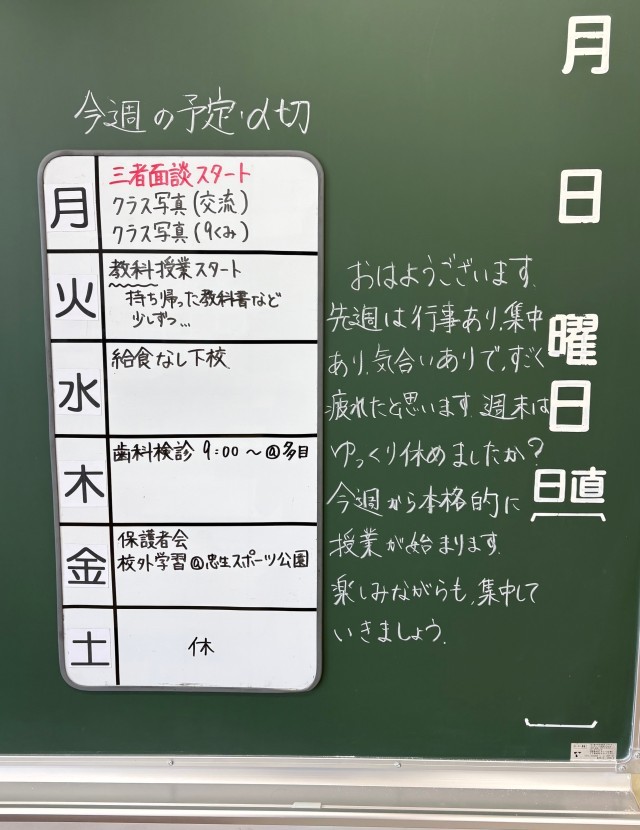 今週の予定・〆切
月
三者面談スタート
クラス写真(交流)
クラス写真(9くみ)
火
教科授業スタート
持ち帰った教科書など
少しずつ...
水
給食なし下校
木
歯科検診 9:00～@多目
金
保護者会
校外学習@忠生スポーツ公園
土
休
おはようございます.
先週は行事あり,集中
あり,気合いありで,すごく
疲れたと思います.週末は
ゆっくり休めましたか?
今週から本格的に
授業が始まります.
楽しみながらも,集中して
いきましょう.
月
日
曜
日
日直